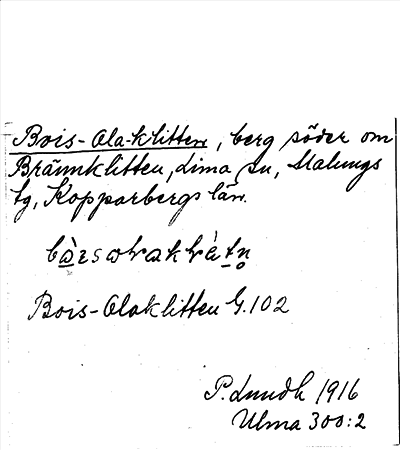 Bois-Olaklitten, berg söder om
Brännklitten, Lima sn, Malungs
tg, Kopparbergs län.
Bois-Olaklitten G.102
P. Lundh 1916
Ulma 300:2